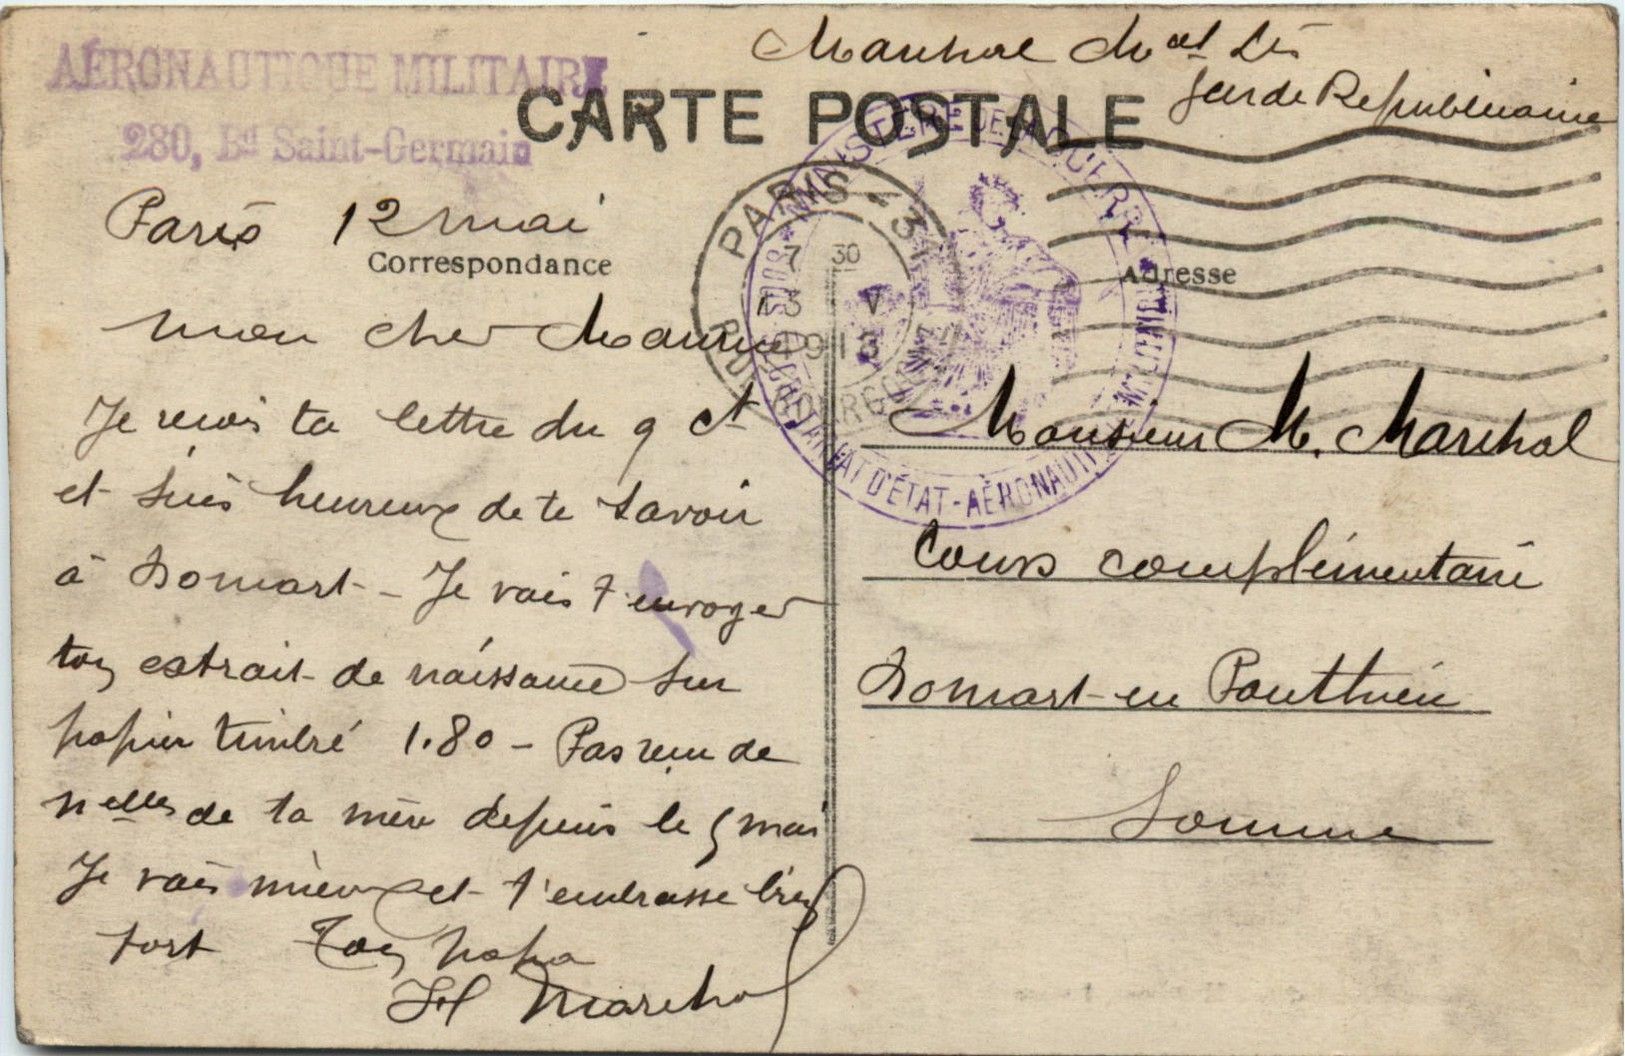 AÉRONAUTIQUE MILITAIRE
280, Bd Saint-Germain
Marchal Mal Lis
Garde Republicaine
CARTE POSTALE
MINISTÈRE DE LA GUERRE
SOUS-SECRÉTARIAT D'ÉTAT-AÉRONAUTIQUE MILITAIRE
PARIS
7 30
13 V
Paris 12 mai
Correspondance
Mon cher Maurice
Je reçois ta lettre du 9 ct
et suis heureux de te savoir
à Domart - Je vais t'envoyer
ton extrait de naissance sur
papier timbré 1.80 - Pas reçu de
nelles de ta mère depuis le 5 mai
Je vais mieux et t'embrasse bien
fort Ton papa
Marchal
Adresse
Monsieur M. Marchal
Cours complémentaire
Domart-en Ponthieu
Somme